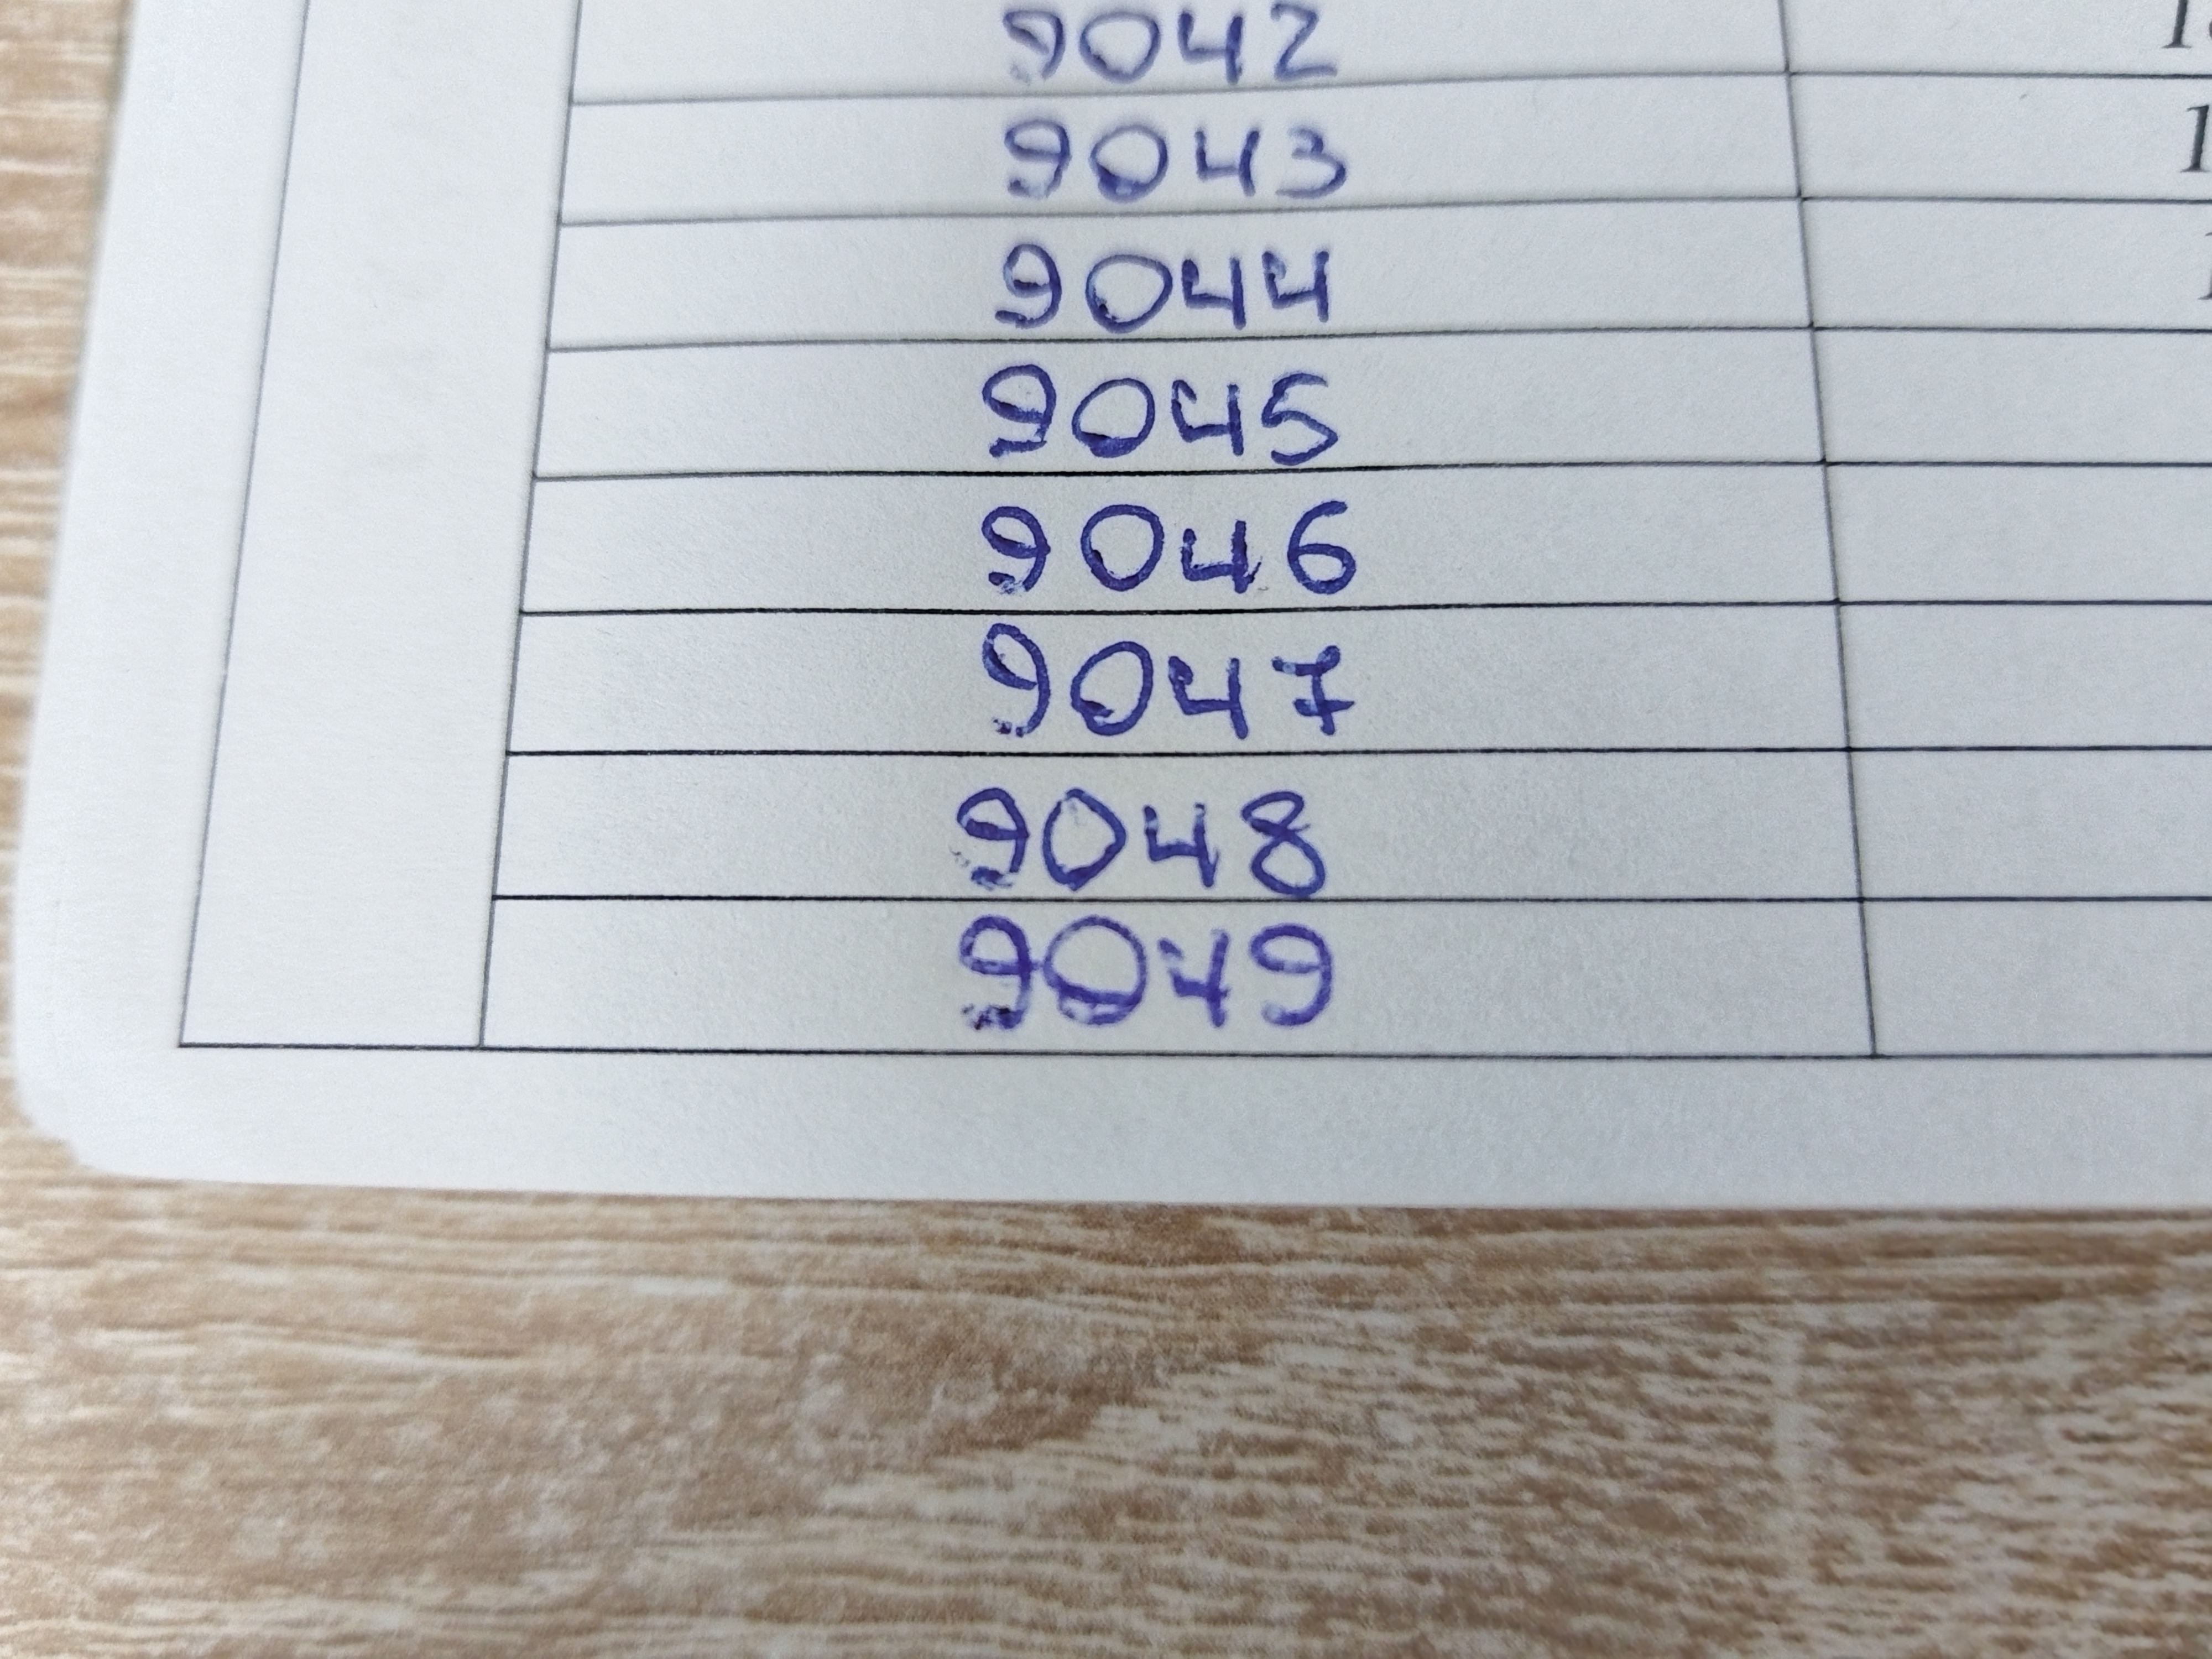 9042
9043
9044
9045
9046
9047
9048
9049